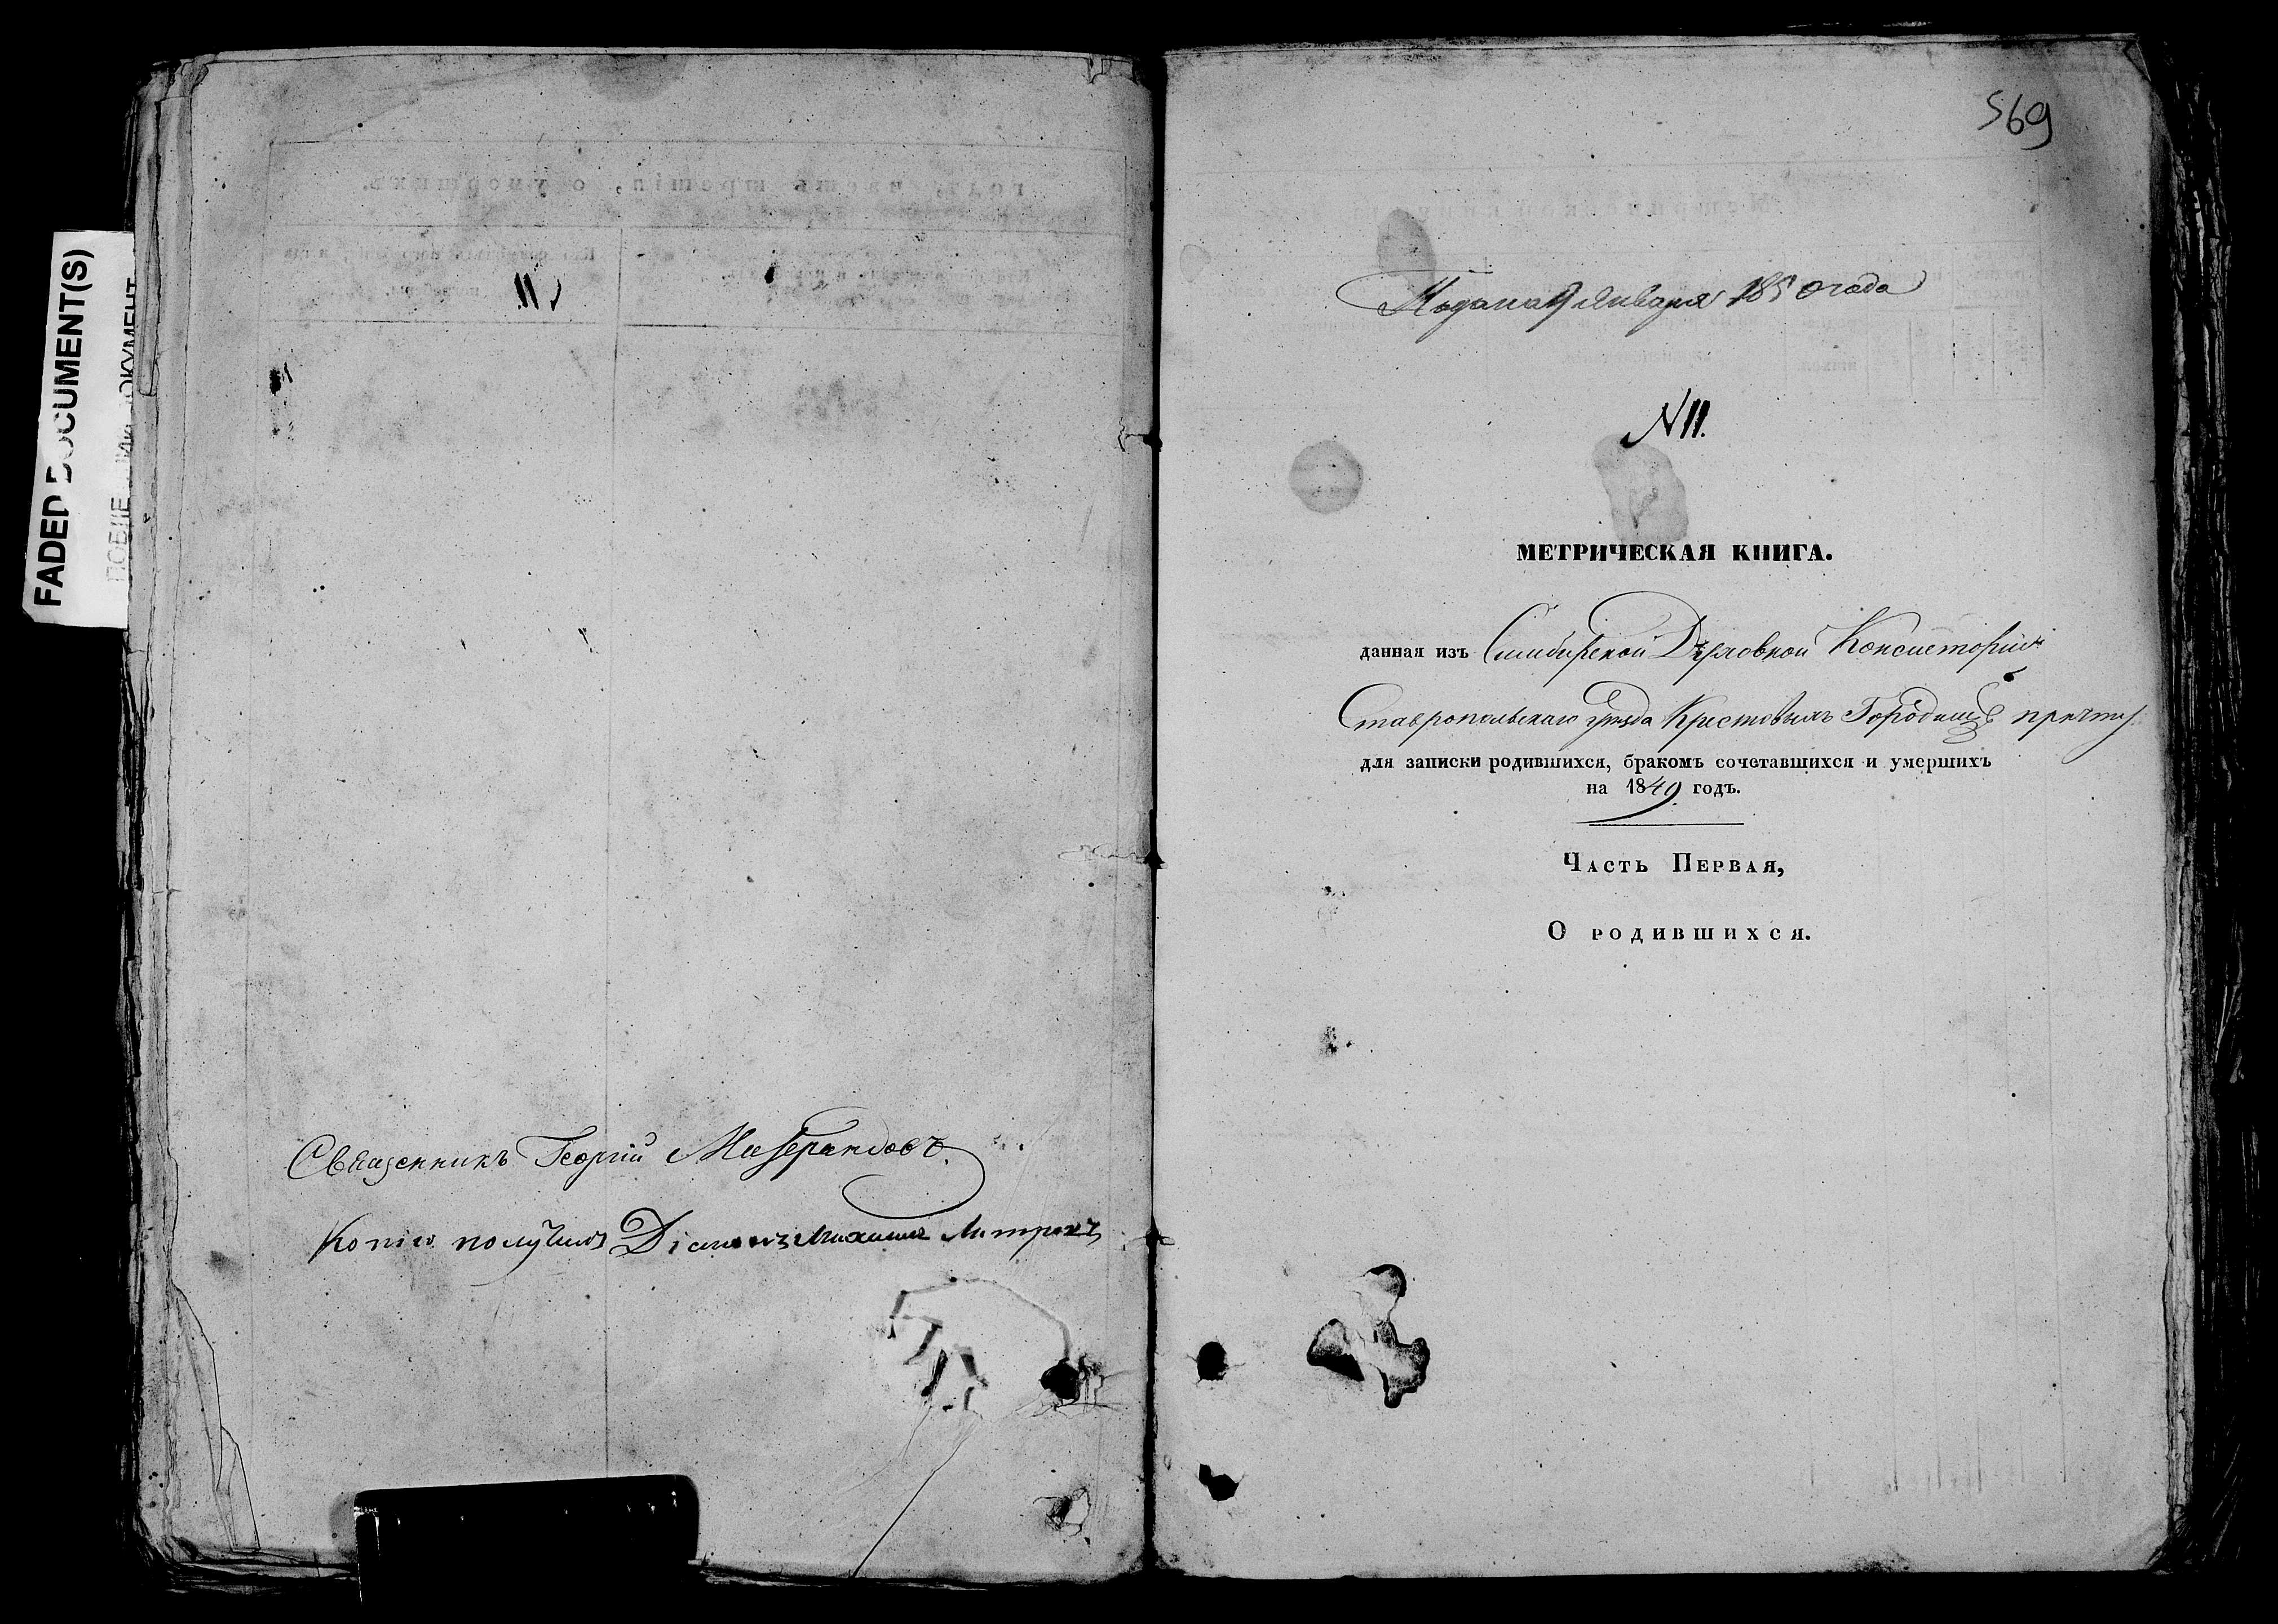 FADED DOCUMENT(S)
Священникъ Георгій
Копію получилъ Діаконъ Михаилъ
569
Подана 9 Января 1850 года
N 11.
МЕТРИЧЕСКАЯ КНИГА.
данная изъ Симбирской Духовной Консисторіи
Ставропольскаго уѣзда Крестовыхъ Городищь причту
для записки родившихся, бракомъ сочетавшихся и умершихъ
на 1849 годъ.
Часть Первая,
О родившихся.